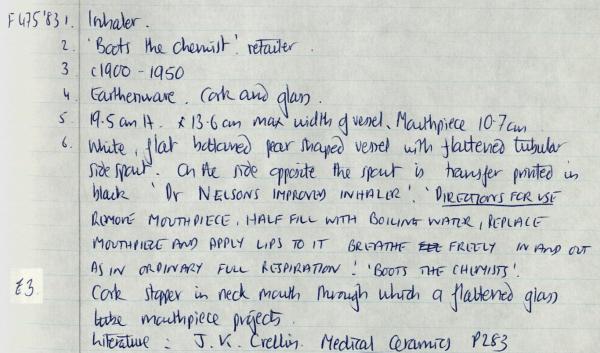 F475'83 1. Inhaler.
2. 'Boots the chemist' retailer.
3 c1900 - 1950
4 Earthenware. Cork and glass.
5 19.5 cm H. x 13.6 cm max width of vessel. Mouthpiece 10.7cm
6. White, flat bottomed pear shaped vessel with flattened tubular
side spout. On the side opposite the spout is transfer printed in
black 'Dr NELSONS IMPROVED INHALER'. 'DIRECTIONS FOR USE
REMOVE MOUTHPIECE, HALF FILL WITH BOILING WATER, REPLACE
MOUTHPIECE AND APPLY LIPS TO IT BREATHE FREELY IN AND OUT
AS IN ORDINARY FULL RESPIRATION! 'BOOTS THE CHEMISTS'.
£3. Cork stopper in neck mouth through which a flattened glass
tube mouthpiece projects.
Literature : J.K. Crellin. Medical Ceramics P283